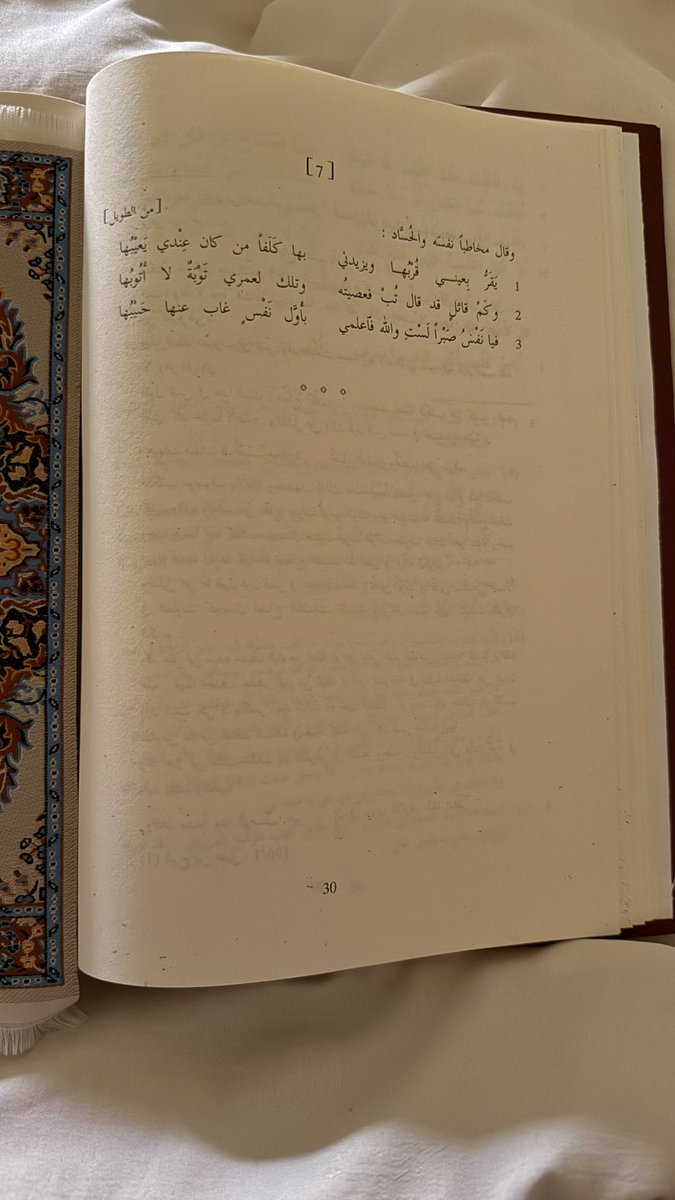 [7]
[من الطويل]
وقال مخاطباً نفسَه والحُسَّاد :
1 يَقَرُّ بِعينـــي قُرْبُهــا ويزيدني بها كَلَفاً من كان عِنْدي يَعيْبُها
2 وكَمْ قائلٍ قد قال تُبْ فعصيتُه وتلك لعمري تَوْبَةٌ لا أَتُوبُها
3 فيا نَفْسُ صَبْراً لَسْتِ والله فَآعلمي بأوَّل نَفْسٍ غاب عنها حَبيْبُها
* * *
30